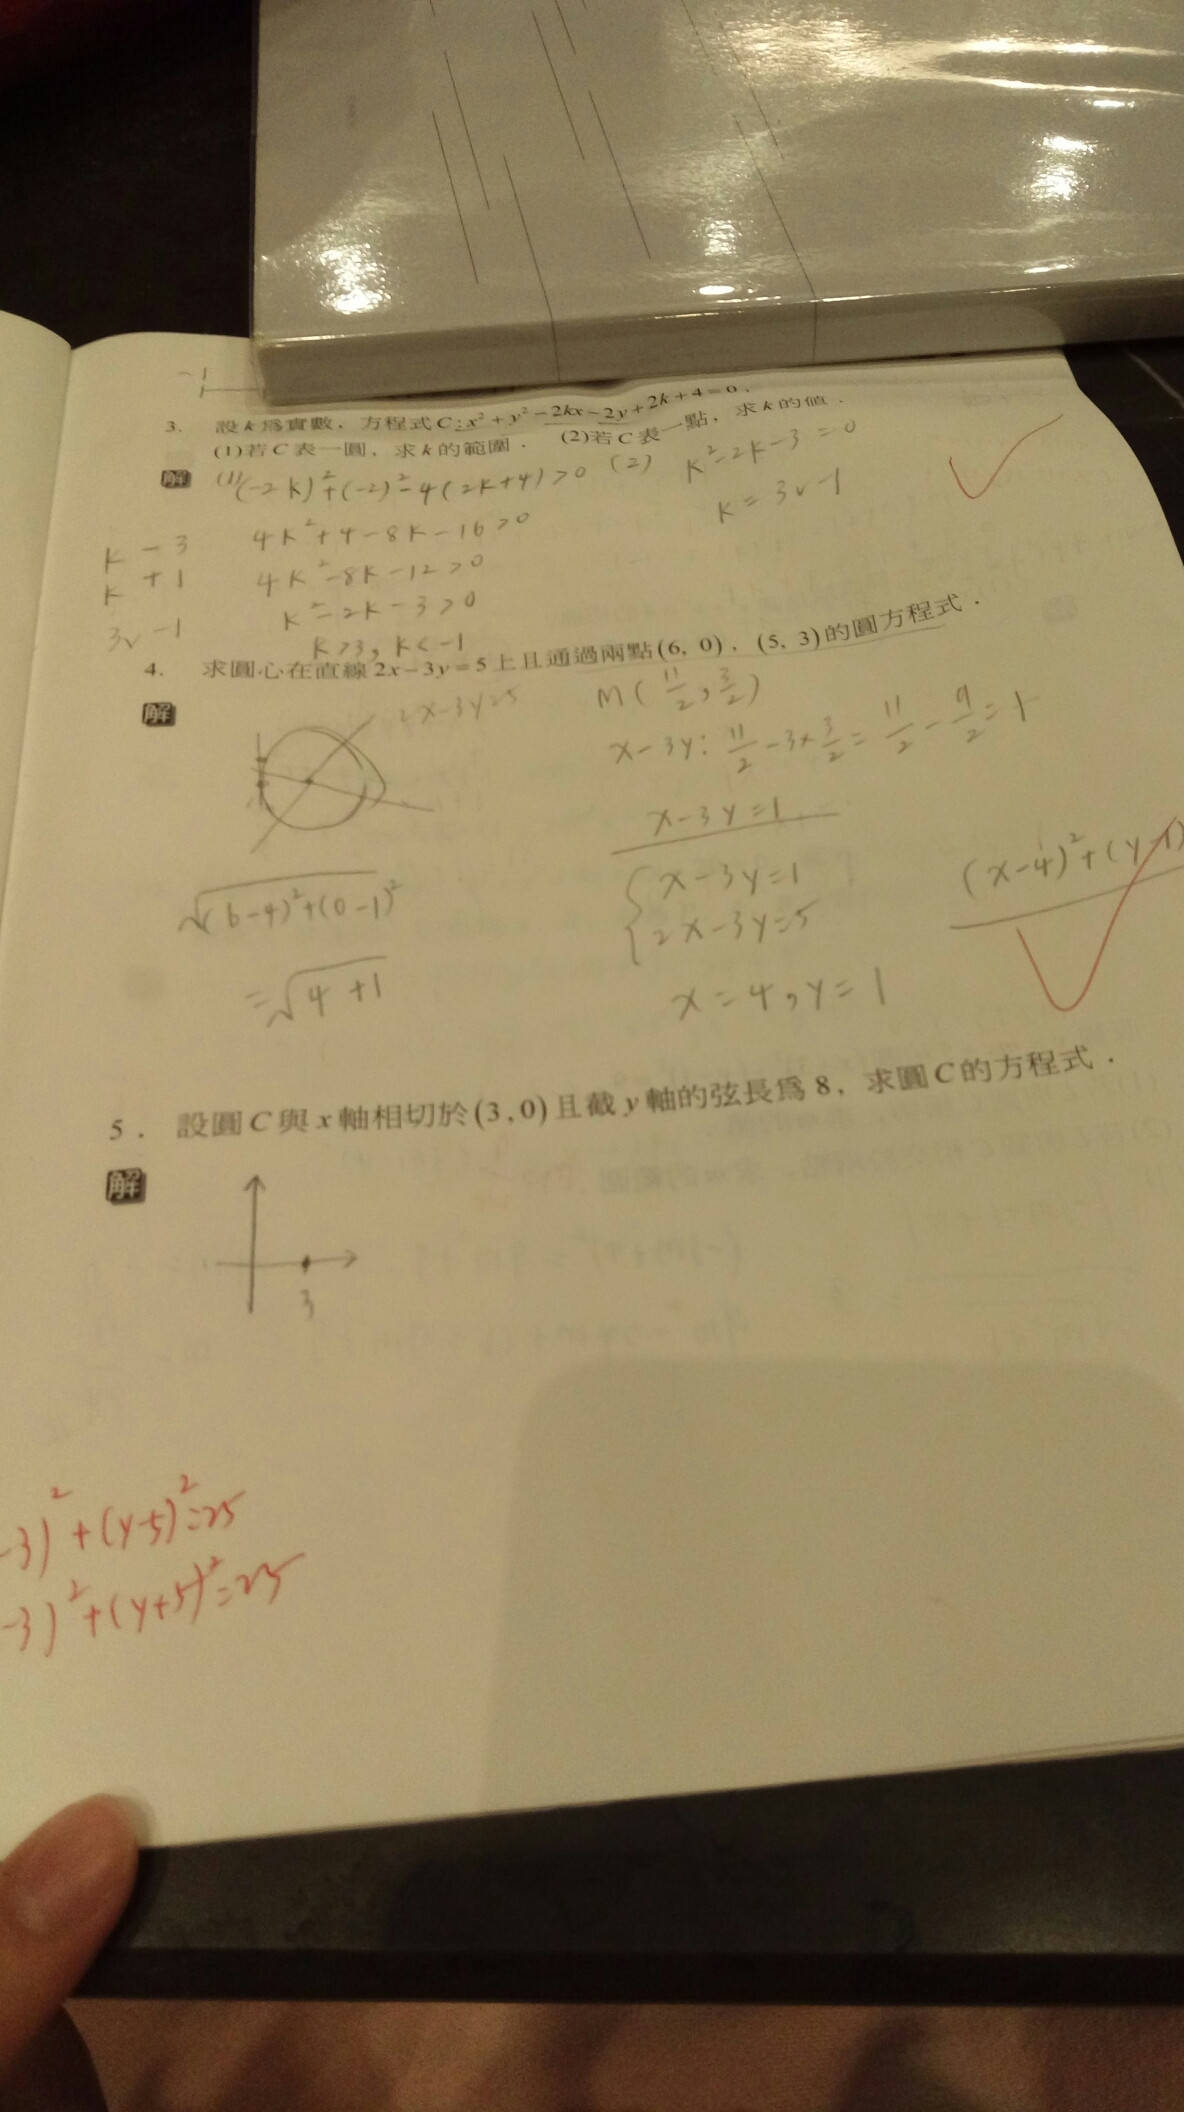 -1
3. 設k為實數，方程式C:x²+y²-2kx-2y+2k+4=0．
(1)若C表一圓，求k的範圍． (2)若C表一點，求k的值．
解 (1)(-2k)²+(-2)²-4(2k+4)>0 (2) k²-2k-3=0
k -3 4k²+4-8k-16>0 k=3∨-1
k +1 4k²-8k-12>0
3∨-1 k²-2k-3>0
k>3, k<-1
4. 求圓心在直線2x-3y=5上且通過兩點(6, 0)．(5, 3)的圓方程式．
解 2x-3y=5 M(11/2, 3/2)
x-3y: 11/2-3×3/2=11/2-9/2=1
x-3y=1
√(6-4)²+(0-1)² {x-3y=1 (x-4)²+(y-1)
2x-3y=5
=√4+1 x=4, y=1
5. 設圓C與x軸相切於(3,0)且截y軸的弦長為8，求圓C的方程式．
解
3
-3)²+(y-5)²=25
-3)²+(y+5)²=25